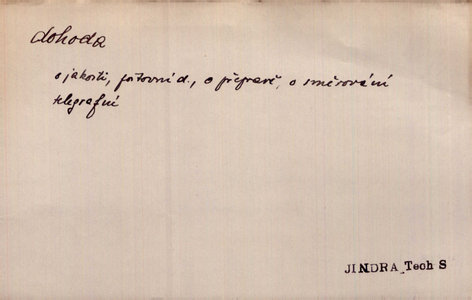 dohoda
o jakosti, poštovní d., o přepravě, o směrování
telegrafní
JINDRA, Tech S